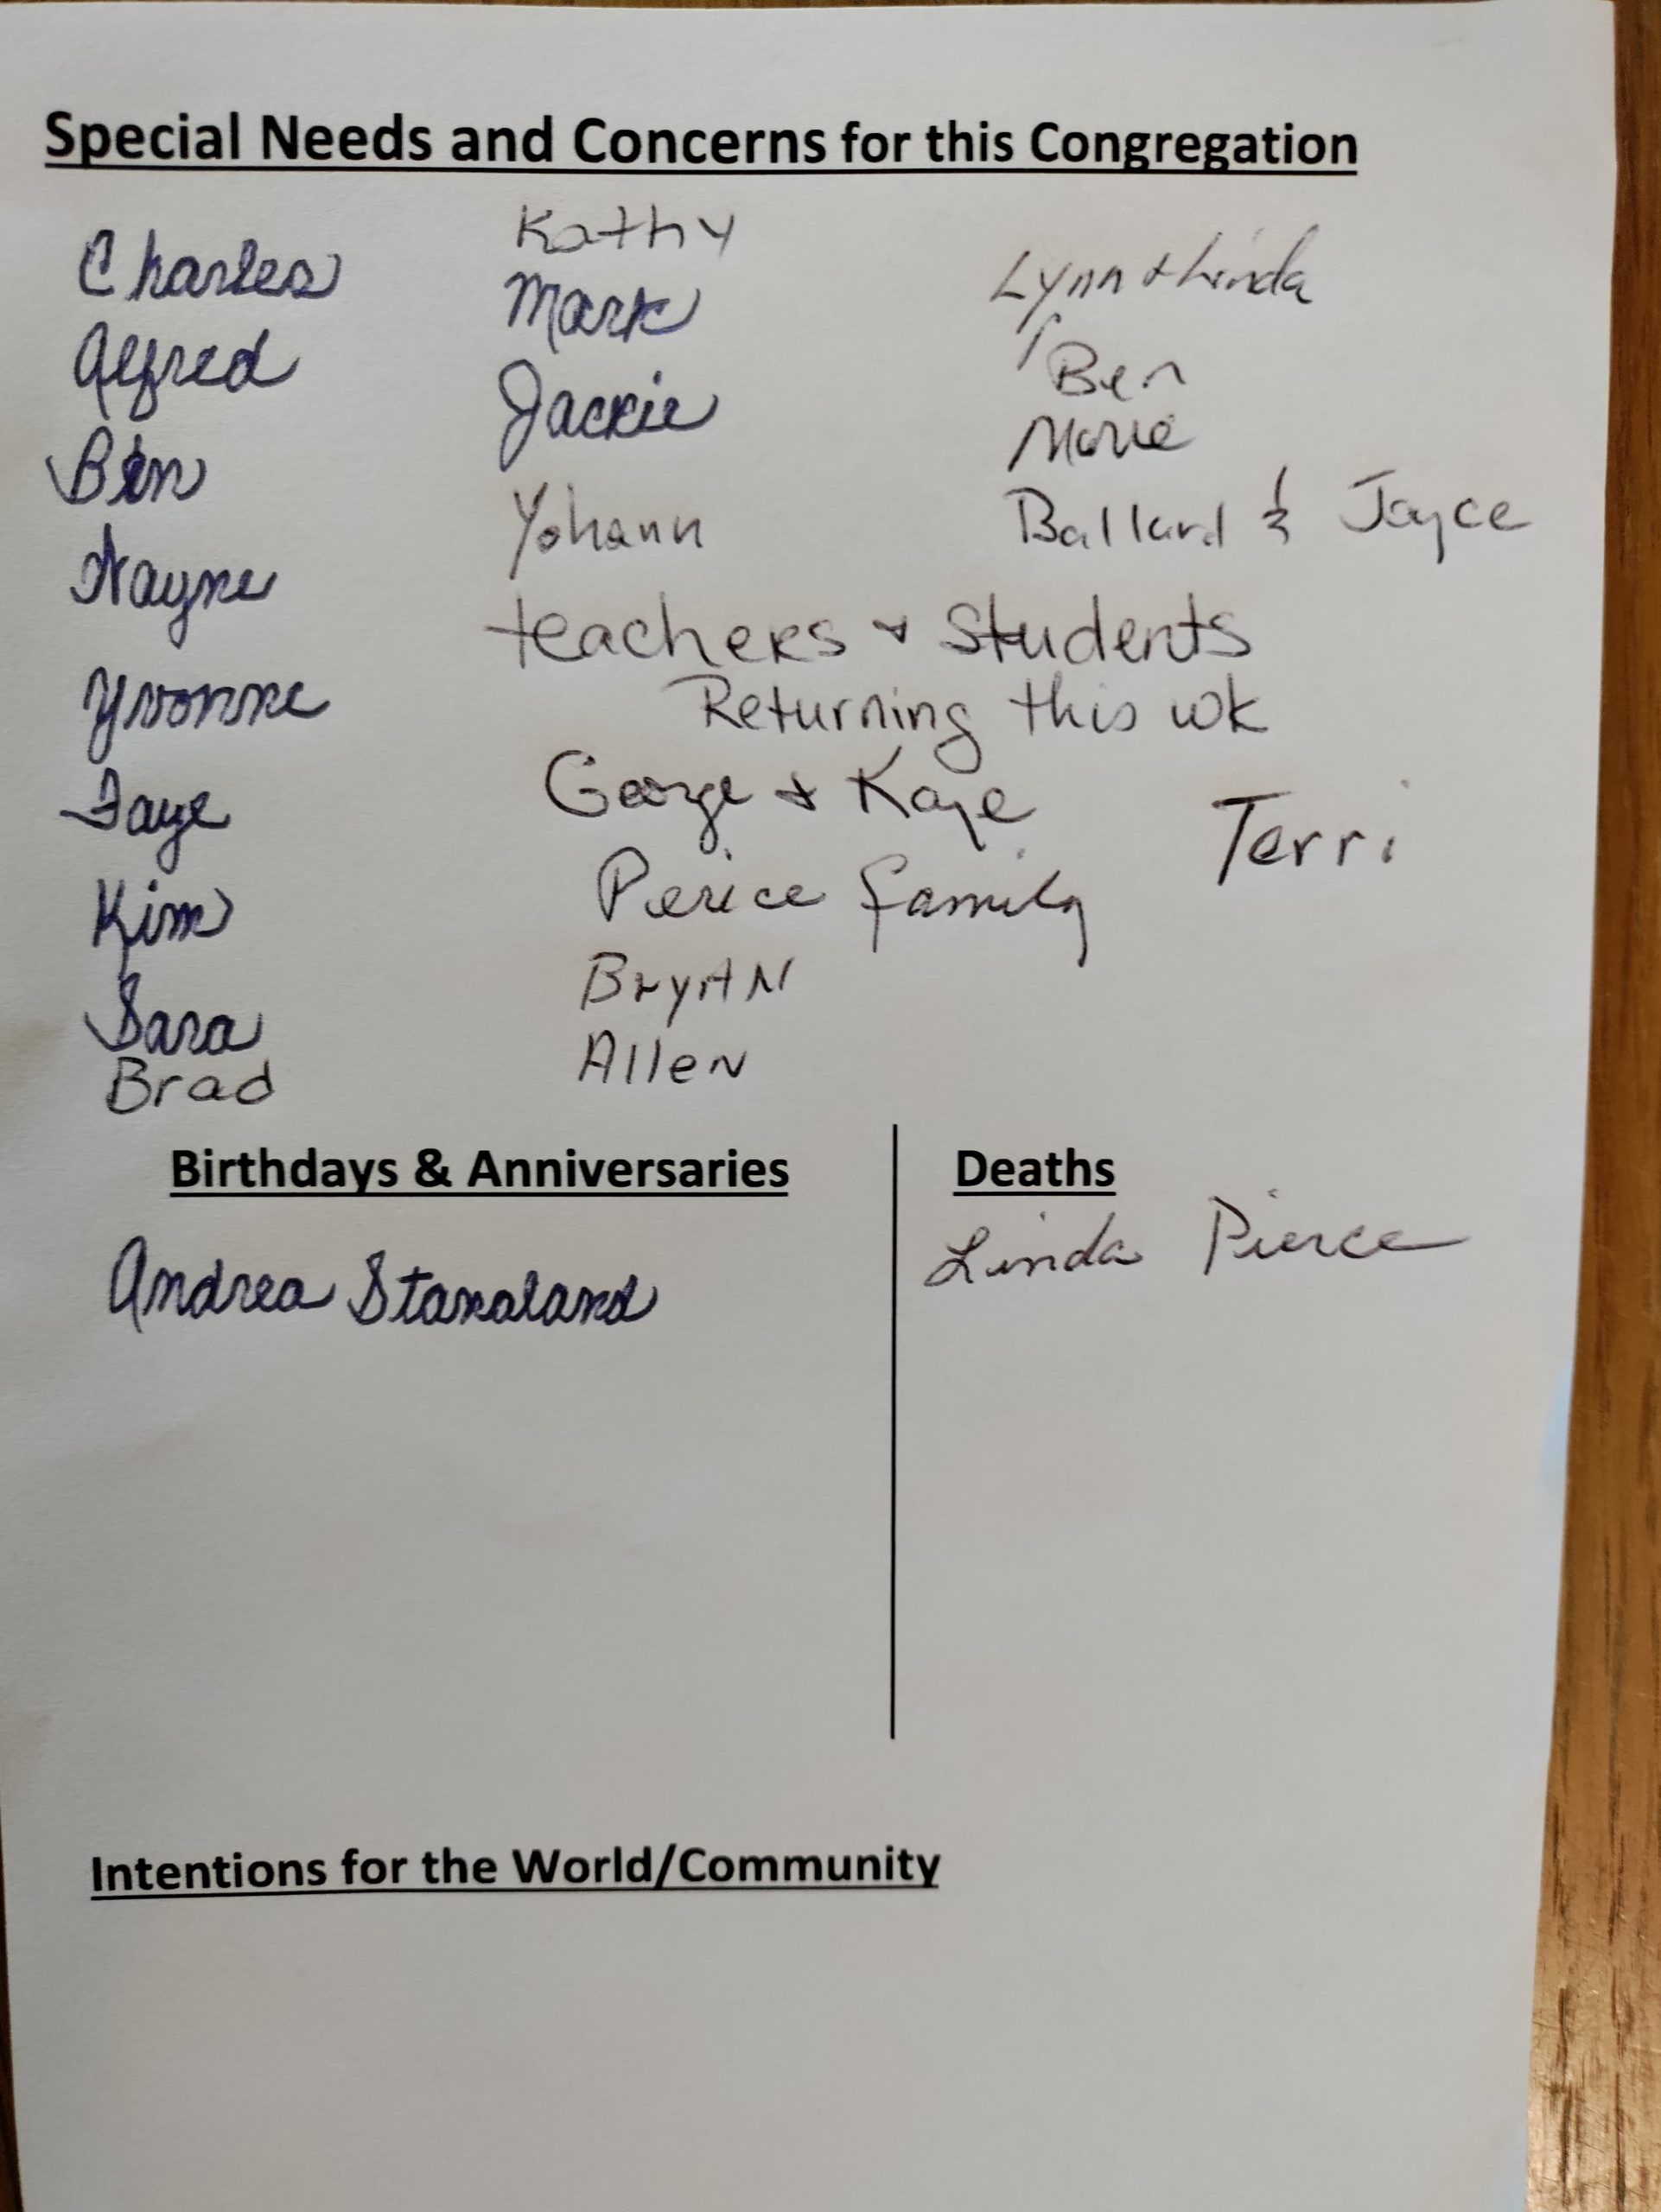 Special Needs and Concerns for this Congregation
Charles
Alfred
Ben
Wayne
Yvonne
Faye
Kim
Sara
Brad
Kathy
Mark
Jackie
Yohann
Lynn & Linda
Ben
Marie
Ballard & Joyce
teachers & Students
Returning this wk
George & Kaye
Perice family
Terri
BryAN
AlleN
Birthdays & Anniversaries
Andrea Stanaland
Deaths
Linda Pierce
Intentions for the World/Community